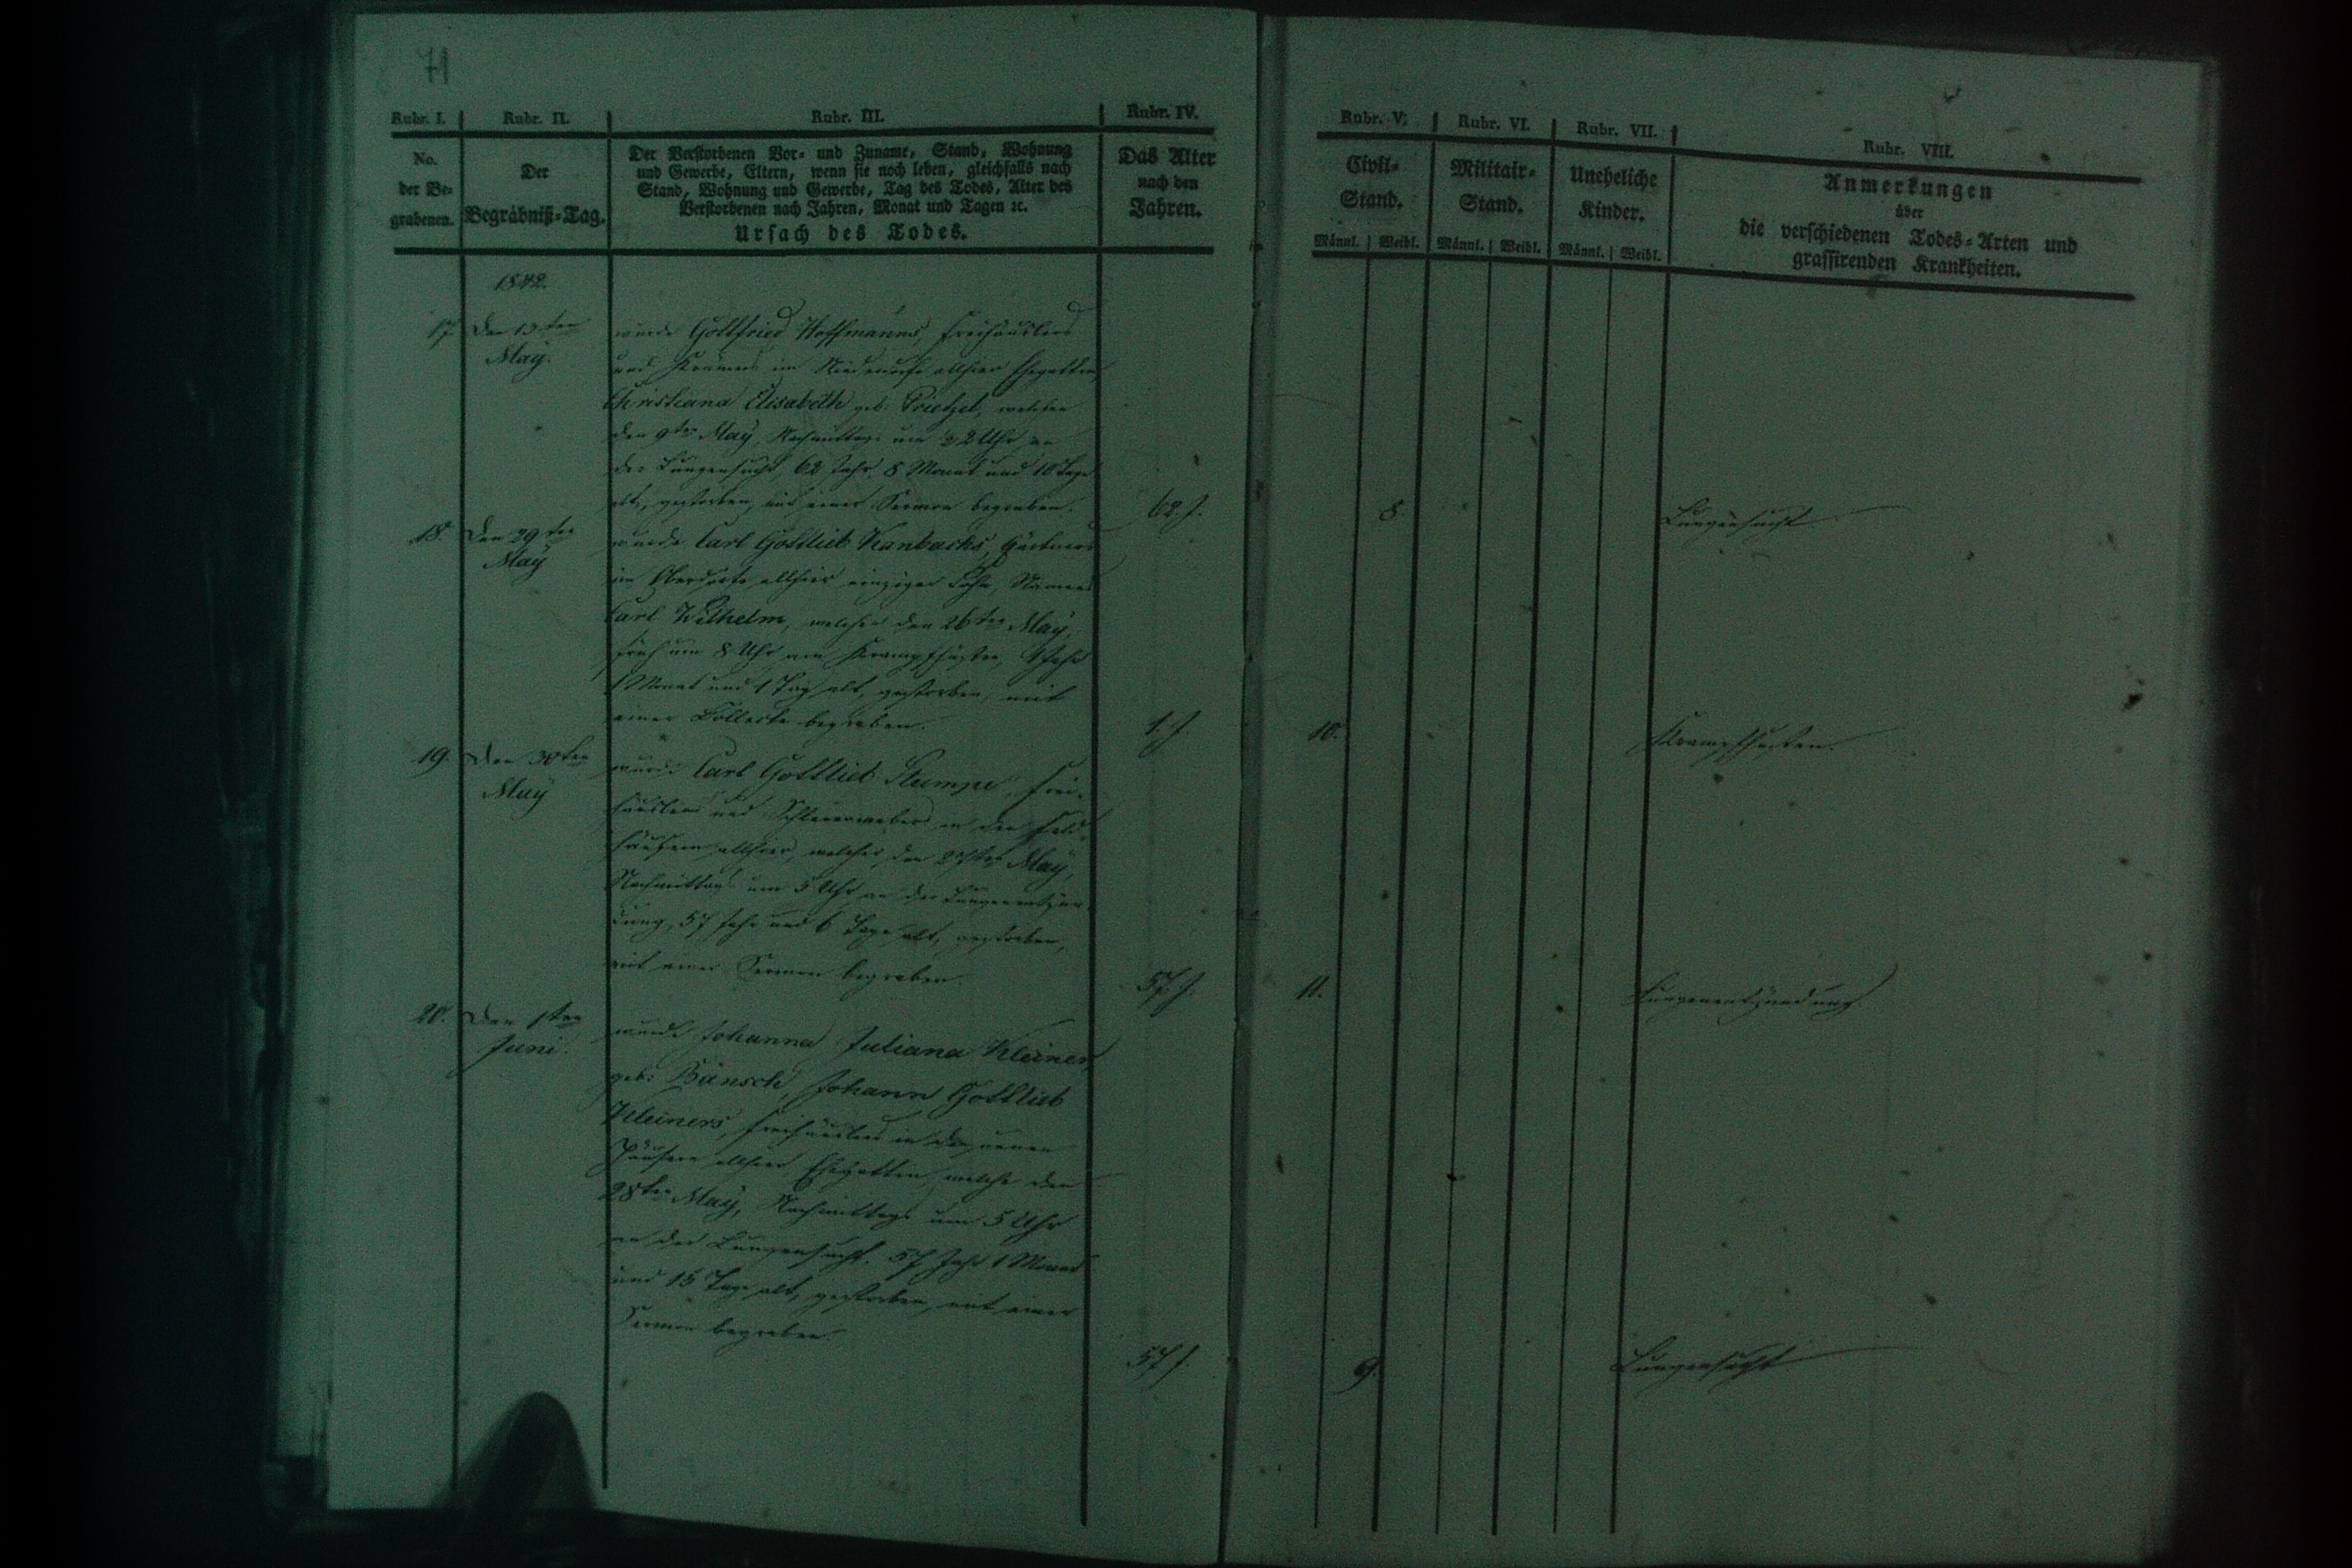 71
Rubr. I.
Rubr. II.
Rubr. III.
Rubr. IV.
No.
der Be-
grabenen.
Der
Begräbniß-Tag.
Der Verstorbenen Vor- und Zuname, Stand, Wohnung
und Gewerbe, Eltern, wenn sie noch leben, gleichfalls nach
Stand, Wohnung und Gewerbe, Tag des Todes, Alter des
Verstorbenen nach Jahren, Monat und Tagen ꝛc.
Ursach des Todes.
Das Alter
nach den
Jahren.
1842.
17.
Den 13ten
May.
wurde Gottfried Hoffmanns, Freihäuslers
und Krämers im Niederdorfe allhier Ehegattin,
Christiana Elisabeth geb. Prietzel, welche
den 9ten May, Nachmittags um 2 Uhr an
der Lungensucht, 62 Jahr, 8 Monat und 10 Tage
alt, gestorben, mit einer Sermon begraben.
62. J.
18.
Den 29ten
May
wurde Carl Gottlieb Kanbachs, Gärtners
im Oberdorfe allhier einziger Sohn, Namens
Carl Wilhelm, welcher den 26ten May,
früh um 8 Uhr am Krampfhusten, 1 Jahr
1 Monat und 1 Tag alt, gestorben, mit
einer Collecte begraben.
1. J.
19.
Den 30ten
May
wurde Carl Gottlieb Stumpe, Frei-
häusler und Schleierweber in den Feld-
häusern allhier, welcher den May,
Nachmittags um 5 Uhr an der Lungenentzün-
dung, 57 Jahr und 6 Tage alt, gestorben,
mit einer Sermon begraben.
57. J.
20.
Den 1ten
Juni.
wurde Johanna Juliana Kleiner,
geb: Bänsch, Johann Gottlieb
Kleiners, Freihäuslers in den neuen
Häusern allhier Ehegattin, welche den
28ten May, Nachmittags um 5 Uhr
an der Lungensucht, 57 Jahr 1 Monat
und 15 Tage alt, gestorben, mit einer
Sermon begraben.
57 J.
Rubr. V.
Rubr. VI.
Rubr. VII.
Rubr. VIII.
Civil-
Stand.
Männl. | Weibl.
Militair-
Stand.
Männl. | Weibl.
Uneheliche
Kinder.
Männl. | Weibl.
Anmerkungen
über
die verschiedenen Todes-Arten und
grassirenden Krankheiten.
8.
Lungensucht
10.
Krampfhusten.
11.
Lungenentzündung.
9.
Lungensucht